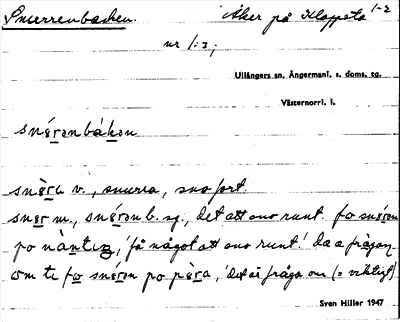 Snurrenbacken. Åker på Kloppsta 1-2
nr 1:3;
Ullångers sn, Ångermanl. s. doms. sg.
Västernorrl. l.
snéronbákon
snèra v., snurra, sno fort
sner m., snéron b. sg., det att sno runt. fo snéron
po nànting, 'få något att sno runt.' Da a frågon
om te fo snéron po pèra, 'det är fråga om (= viktigt)
Sven Hiller 1947